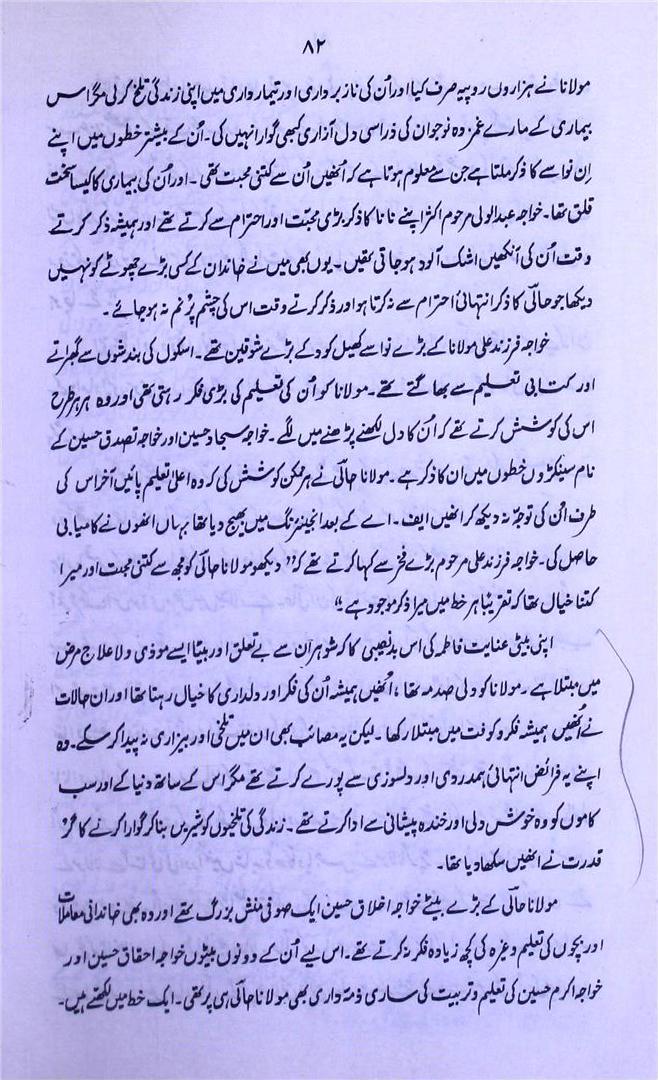 ۸۲
مولانا نے ہزاروں روپیہ صرف کیا اور اُن کی ناز برداری اور تیمار داری میں اپنی زندگی تلخ کر لی مگر اس
بیماری کے مارے غمزدہ نوجوان کی ذراسی دل آزاری کبھی گوارا نہیں کی۔ اُن کے بیشتر خطوں میں اپنے
اِن نواسے کا ذکر ملتا ہے جن سے معلوم ہوتا ہے کہ اُنھیں اُن سے کتنی محبت تھی۔ اور اُن کی بیماری کا کیسا سخت
قلق تھا۔ خواجہ عبد الولی مرحوم اکثر اپنے نانا کا ذکر بڑی محبّت اور احترام سے کرتے تھے اور ہمیشہ ذکر کرتے
وقت اُن کی آنکھیں اشک آلود ہو جاتی تھیں۔ یوں بھی میں نے خاندان کے کسی بڑے چھوٹے کو نہیں
دیکھا جو حالی کا ذکر انتہائی احترام سے نہ کرتا ہو اور ذکر کرتے وقت اس کی چشم پُرنم نہ ہو جائے۔
خواجہ فرزند علی مولانا کے بڑے نواسے کھیل کود کے بڑے شوقین تھے۔ اسکول کی بندشوں سے گھبراتے
اور کتابی تعلیم سے بھاگتے تھے۔ مولانا کو اُن کی تعلیم کی بڑی فکر رہتی تھی اور وہ ہر ہر طرح
اس کی کوشش کرتے تھے کہ اُن کا دل لکھنے پڑھنے میں لگے۔ خواجہ سجاد حسین اور خواجہ تصدق حسین کے
نام سینکڑوں خطوں میں ان کا ذکر ہے۔ مولانا حالی نے ہر ممکن کوشش کی کہ وہ اعلیٰ تعلیم پائیں آخر اس کی
طرف اُن کی توجّہ نہ دیکھ کر انھیں ایف۔ اے کے بعد انجینئرنگ میں بھیج دیا تھا یہاں انھوں نے کامیابی
حاصل کی۔ خواجہ فرزند علی مرحوم بڑے فخر سے کہا کرتے تھے کہ ”دیکھو مولانا حالی کو مجھ سے کتنی محبت اور میرا
کتنا خیال تھا کہ تقریباً ہر خط میں میرا ذکر موجود ہے“
اپنی بیٹی عنایت فاطمہ کی اس بدنصیبی کا کہ شوہر اُن سے بے تعلق اور بیٹا ایسے موذی ولا علاج مرض
میں مبتلا ہے۔ مولانا کو دلی صدمہ تھا، اُنھیں ہمیشہ اُن کی فکر اور دلداری کا خیال رہتا تھا اور ان حالات
نے اُنھیں ہمیشہ فکر و کوفت میں مبتلا رکھا۔ لیکن یہ مصائب بھی ان میں تلخی اور بیزاری نہ پیدا کر سکے۔ وہ
اپنے یہ فرائض انتہائی ہمدردی اور دلسوزی سے پورے کرتے تھے مگر اس کے ساتھ دنیا کے اور سب
کاموں کو وہ خوش دلی اور خندہ پیشانی سے ادا کرتے تھے۔ زندگی کی تلخیوں کو شیریں بنا کر گوارا کرنے کا گُر
قدرت نے انھیں سکھا دیا تھا۔
مولانا حالی کے بڑے بیٹے خواجہ اخلاق حسین ایک صوفی منش بزرگ تھے اور وہ بھی خاندانی معاملات
اور بچوں کی تعلیم وغیرہ کی کچھ زیادہ فکر نہ کرتے تھے۔ اس لیے اُن کے دونوں بیٹوں خواجہ احقاق حسین اور
خواجہ اکرم حسین کی تعلیم و تربیت کی ساری ذمّہ داری بھی مولانا حالی ہی پر تھی۔ ایک خط میں لکھتے ہیں۔